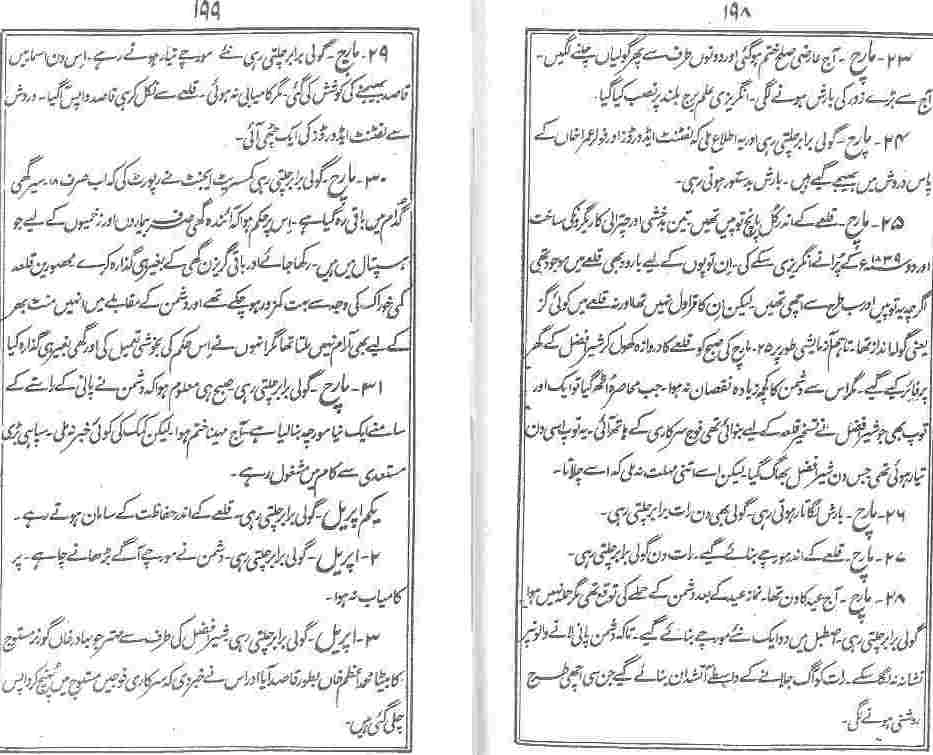 ۱۹۸
۲۳- مارچ - آج عارضی صلح ختم ہوگئی اور دونوں طرف سے پھر گولیاں چلنے لگیں -
آج سے بڑے زور کی بارش ہونے لگی - انگریزی علم برج بلند پر نصب کیا گیا
۲۴- مارچ - گولی برابر چلتی رہی اور یہ اطلاع ملی کہ لفٹنٹ ایڈورڈز اور فولر عمرا خاں کے
پاس دروش میں بھیجے گئے ہیں - بارش بدستور ہوتی رہی -
۲۵- مارچ - قلعے کے اندر کُل پانچ توپیں تھیں تین بدخشی اور چترالی کاریگروں کی ساخت
اور دو ۱۸۳۹ء کے پرانے انگریزی سکے کی - ان توپوں کے لیے بارود بھی قلعے میں موجود تھی
اگرچہ یہ توپیں اور سب طرح سے اچھی تھیں لیکن ان کا قراول نہیں تھا اور نہ قلعے میں کوئی گز
یعنی گولہ انداز تھا - تاہم آزمایشی طور پر ۲۵ - مارچ کی صبح کو قلعے کا دروازہ کھول کر شیر افضل کے گھر
پر فائر کیے گیے - مگر اس سے دشمن کا کچھ زیادہ نقصان نہ ہوا - جب محاصرہ اُٹھ گیا تو ایک اور
توپ بھی جو شیر افضل نے تسخیر قلعہ کے لیے بنوائی تھی فوج سرکاری کے ہاتھ آئی - یہ توپ اسی دن
تیار ہوئی تھی جس دن شیر افضل بھاگ گیا لیکن اسے اتنی مہلت نہ ملی کہ اسے چلاتا -
۲۶- مارچ - بارش لگاتار ہوتی رہی - گولی بھی دن رات برابر چلتی رہی -
۲۷- مارچ - قلعے کے اندر مورچے بنائے گیے - رات دن گولی برابر چلتی رہی -
۲۸- مارچ - آج عید کا دن تھا - نماز عید کے بعد دشمن کے حملے کی توقع تھی مگر حملہ نہیں ہوا
گولی برابر چلتی رہی - اصطبل میں دو ایک نئے مورچے بنائے گیے - تاکہ دشمن پانی لانے والوں پر
نشانہ نہ لگا سکے - رات کو آگ جلانے کے واسطے آتشدان بنائے گیے جن سی اچھی طرح
روشنی ہونے لگی -
۱۹۹
۲۹- مارچ - گولی برابر چلتی رہی نئے مورچے تیار ہوتے رہے - اس دن اسمار میں
قاصد بھیجنے کی کوشش کی گئی - مگر کامیابی نہ ہوئی - قلعے سے نکل کر ہی قاصد واپس آگیا - دروش
سے لفٹنٹ ایڈورڈز کی ایک چٹھی آئی -
۳۰- مارچ - گولی برابر چلتی رہی کمسریٹ ایجنٹ نے رپورٹ کی کہ اب صرف ۱۸ سیر گھی
گدام میں باقی رہ گیا ہے - اس پر حکم ہوا کہ آئندہ گھی صرف بیماروں اور زخمیوں کے لیے جو
ہسپتال میں ہیں - رکھا جائے اور باقی گریزن گھی کے بغیر ہی گذارہ کرے محصورین قلعہ
کمی خوراک کی وجہ سے بہت کمزور ہو چکے تھے اور دشمن کے مقابلے میں انہیں منٹ بھر
کے لیے بھی آرام نہیں ملتا تھا مگر انہوں نے اس حکم کی بخوشی تعمیل کی اور گھی بغیر ہی گذارہ کیا
۳۱- مارچ - گولی برابر چلتی رہی صبح ہی معلوم ہوا کہ دشمن نے پانی کے راستے کے
سامنے ایک نیا مورچہ بنا لیا ہے - آج مہینا ختم ہوا لیکن کمک کی کوئی خبر نہ ملی - سپاہی بڑی
مستعدی سے کام میں مشغول رہے -
یکم اپریل - گولی برابر چلتی رہی - قلعے کے اندر حفاظت کے سامان ہوتے رہے -
۲- اپریل - گولی برابر چلتی رہی - دشمن نے مورچے آگے بڑھانے چاہے - پر
کامیاب نہ ہوا -
۳- اپریل - گولی برابر چلتی رہی - شیر افضل کی طرف سے مہتر جو بہادر خاں گورنر مستوج
کا بیٹا محمد اعظم خاں بطور قاصد آیا اور اس نے خبر دی کہ سرکاری فوجیں مستوج میں پہنچ کر واپس
چلی گئی ہیں -